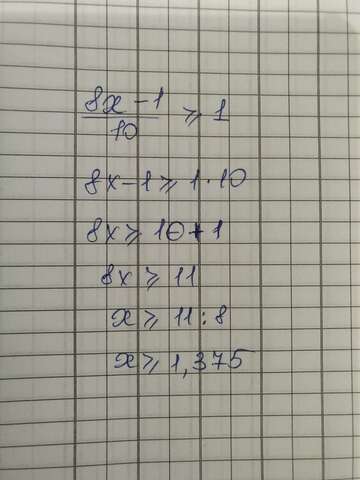 8x - 1 / 10 ⩾ 1
8x - 1 ⩾ 1 · 10
8x ⩾ 10 + 1
8x ⩾ 11
x ⩾ 11 : 8
x ⩾ 1,375